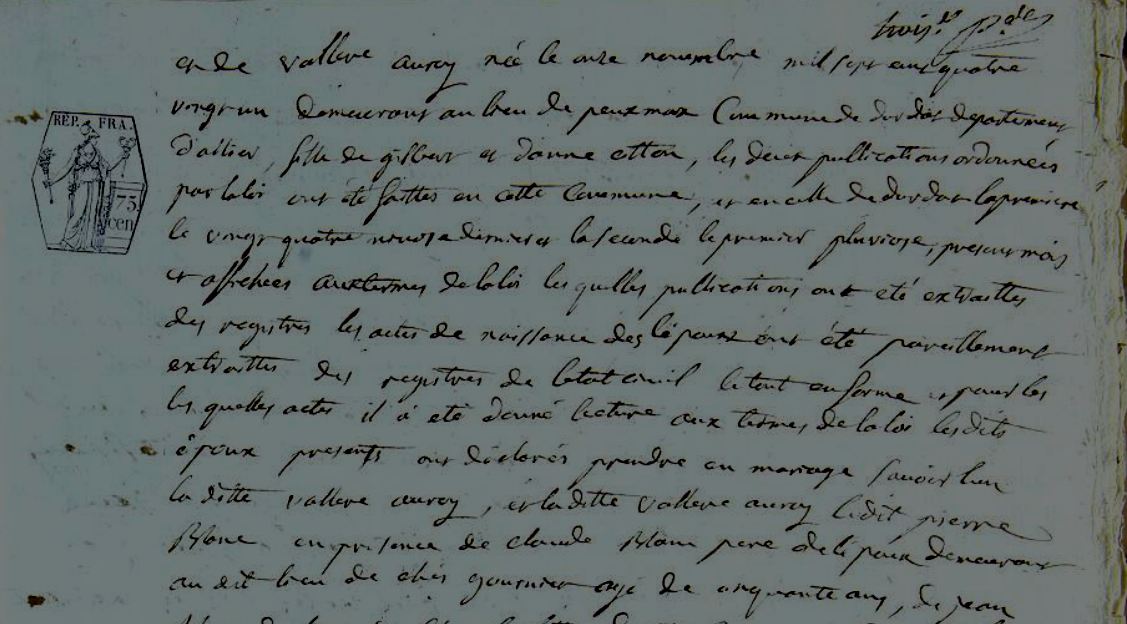 trois.
et de vallere auroy née le onze novembre mil sept cent quatre
vingt un demeurant au lieu de peuxmax Commune de durdat departement
d'allier, fille de gilbert et d'anne, les deux publications ordonnées
par la loi ont été faittes en cette Commune, et en celle de durdat la premiere
le vingt quatre nivose dernier et la seconde le premier pluviose, present mois
et affichées aux termes de la loi les quelles publications ont eté extraittes
des registres les actes de naissance des époux ont été pareillement
extraittes des registres de l'etat civil le tout en forme et pour les
les quelles actes il a eté donné lecture aux termes de la loi les dits
époux presents ont déclarés prendre en mariage savoir l'un
la ditte vallere auroy, et la ditte vallere auroy le dit pierre
Blanc en presence de claude Blanc pere de l'epoux demeurant
au dit lieu de ches gournier agé de cinquante ans, de jean
REP. FRA.
75
cen